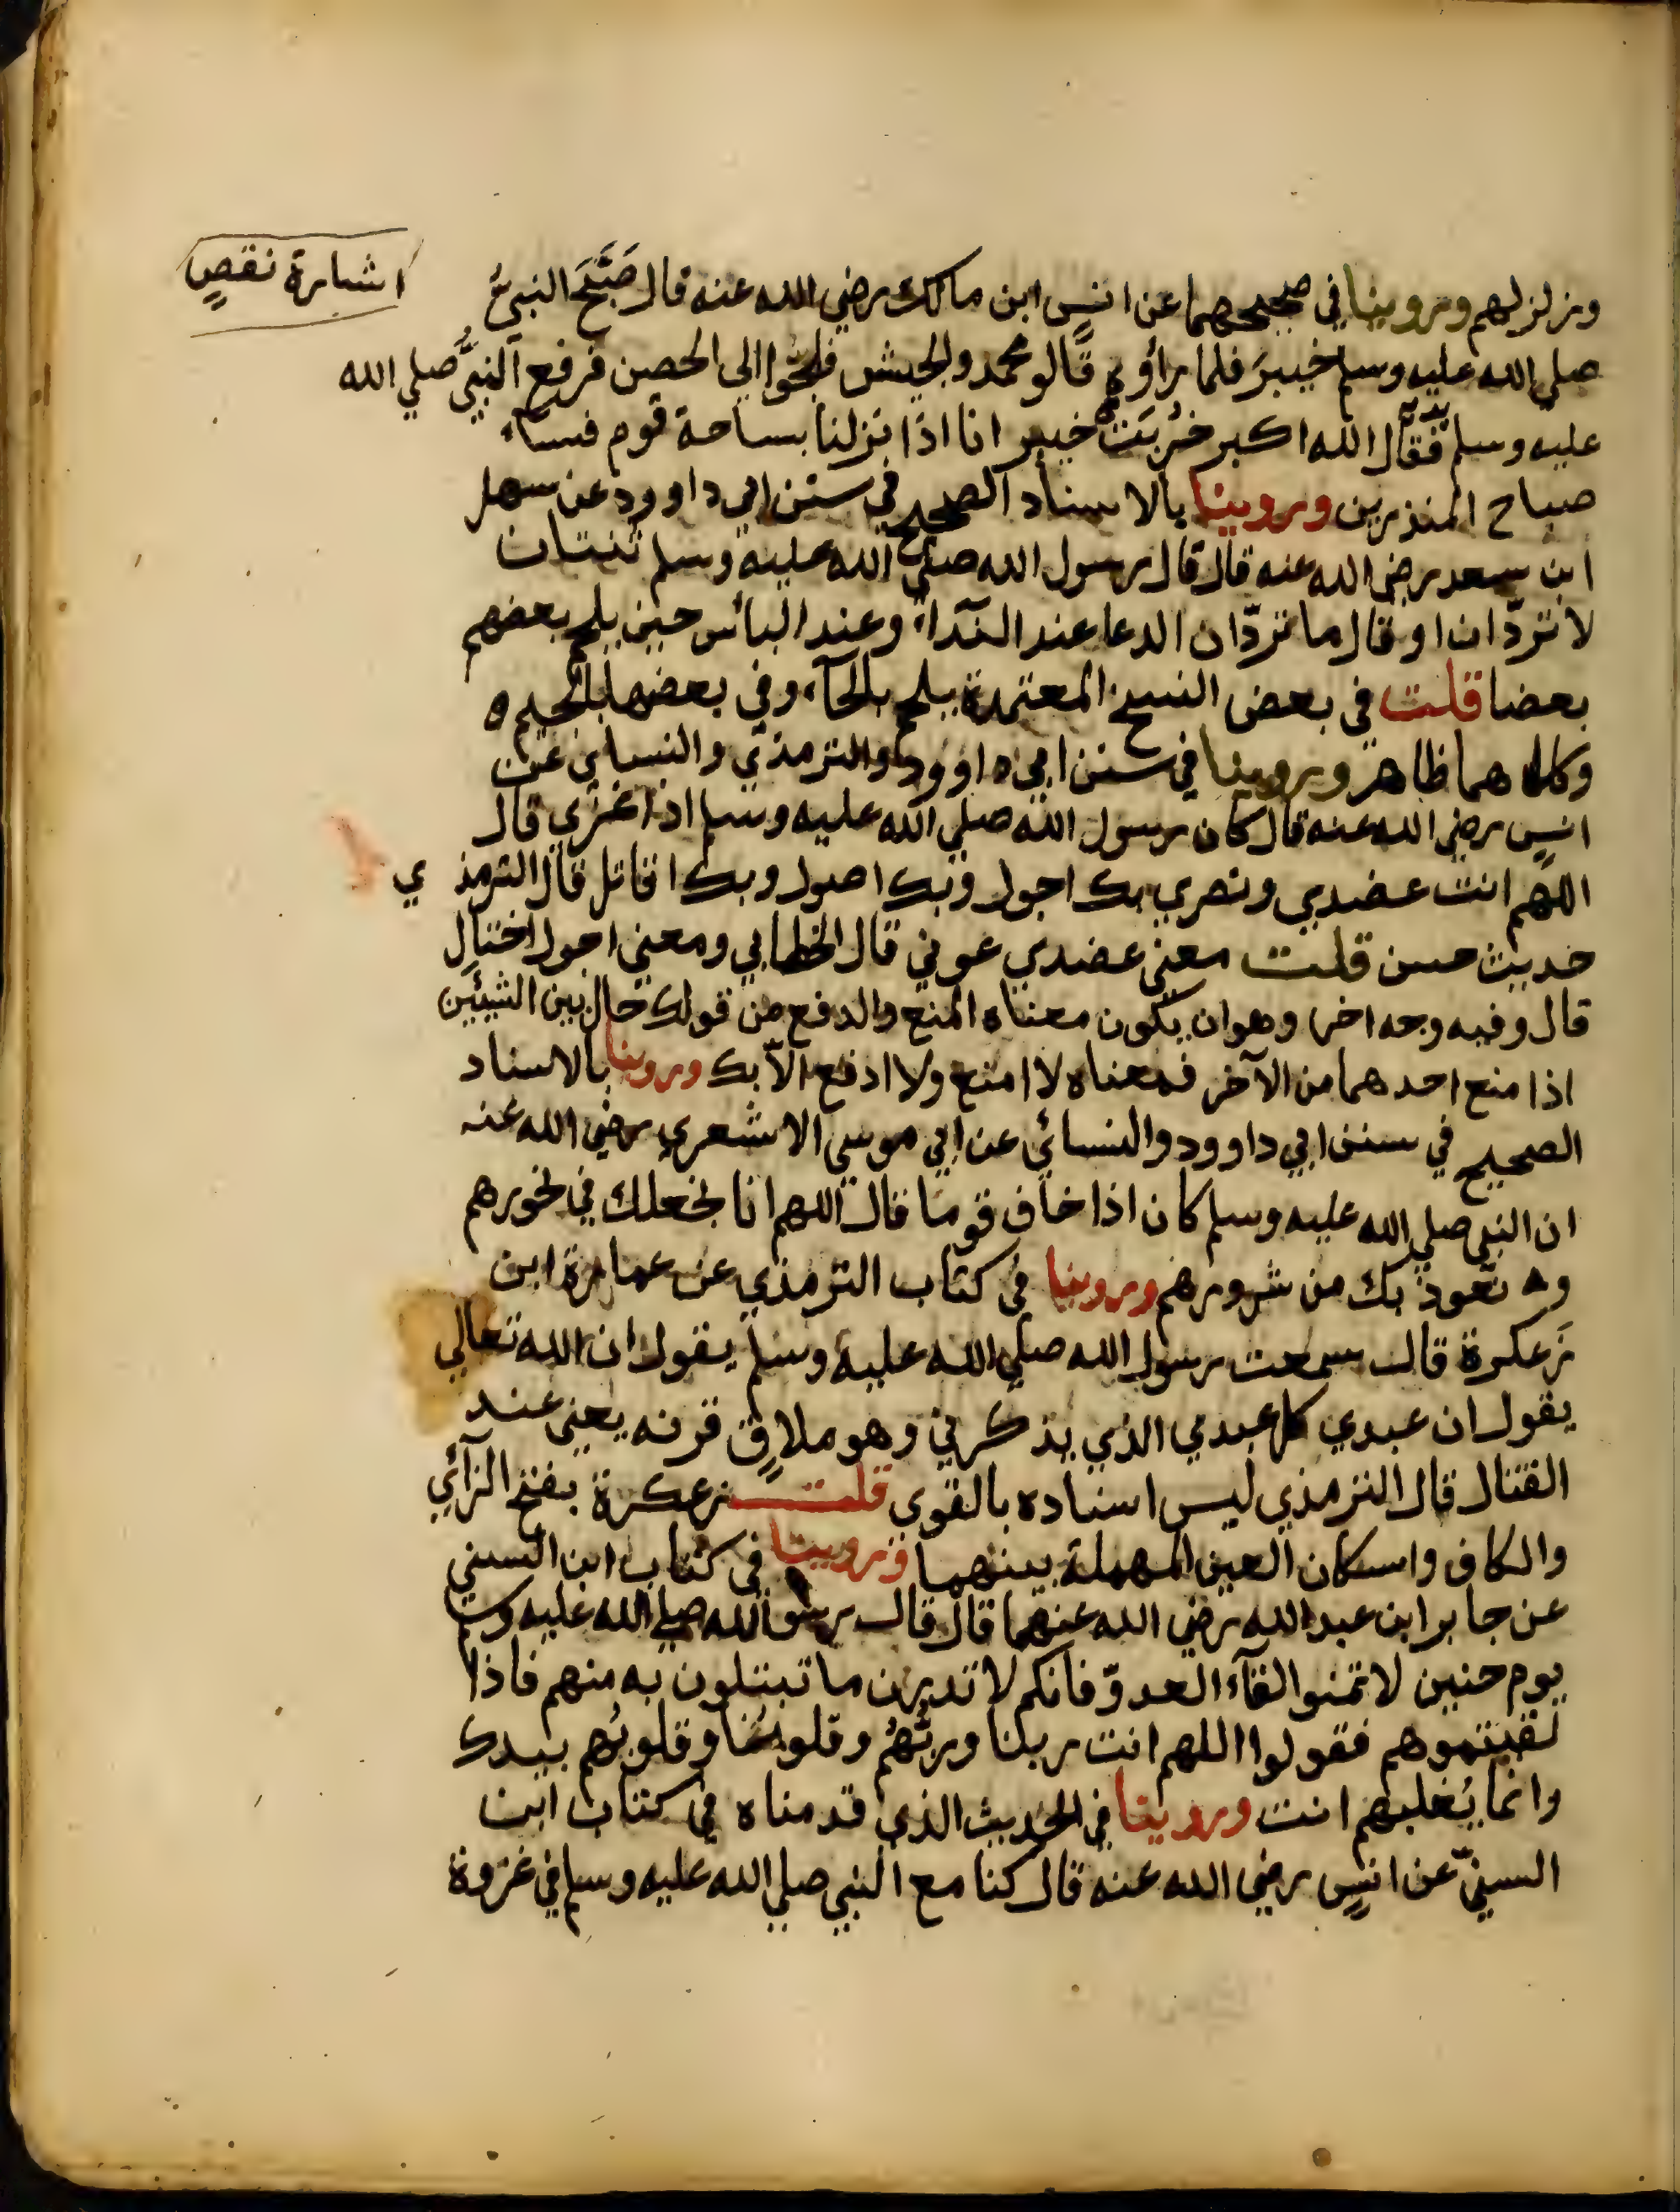 اشارة نقصٍ
وزلزلهم وروينا في صحيحهما عن انسٍ ابن مالك رضي الله عنه قال صَبَّحَ النبيُّ
صلي الله عليه وسلم خيبرَ فلما رأوه قالو محمد والجيش فلجؤا الي الحصن فرفع النبيُّ صلي الله
عليه وسلم يديه فقال الله اكبر خرُبَتْ خيبر انا اذا نزلنا بساحة قوم فسآء
صباح المنذرين وروينا بالاسناد الصحيح في سنن ابي داوود عن سهل
ابن سعد رضي الله عنه قال قال رسول الله صلي الله عليه وسلم ثنتان
لا تردّان او قال ما تردّان الدعا عند الندآء وعند البأس حين يلحم بعضهم
بعضا قلت في بعض النسخ المعتمدة يلحم بالحآء وفي بعضها بالجيم ه
وكلاهما ظاهر وروينا في سنن ابي داوود والترمذي والنسائي عن
انسٍ رضي الله عنه قال كان رسول الله صلي الله عليه وسلم اذا غزي قال
اللهم انت عضدي ونصري بك احول وبك اصول وبك اقاتل قال الترمذي
حديث حسن قلت معني عضدي عوني قال الخطابي ومعني احول احتال
قال وفيه وجه اخر وهو ان يكون معناه المنع والدفع من قولك حال بين الشيئين
اذا منع احدهما من الآخر فمعناه لا امنع ولا ادفع الّا بك وروينا بالاسناد
الصحيح في سنن ابي داوود والنسائي عن ابي موسي الاشعري رضي الله عنه
ان النبي صلي الله عليه وسلم كان اذا خاف قوما قال اللهم انا نجعلك في نحورهم
و نعوذ بك من شرورهم وروينا في كتاب الترمذي عن عمارة ابن
زَعكرة قال سمعت رسول الله صلي الله عليه وسلم يقول ان الله تعالي
يقول ان عبدي كل عبدي الذي يذكرني وهو ملاقٍ قرنه يعني عند
القتال قال الترمذي ليس اسناده بالقوي قلت زعكرة بفتح الزآئي
والكاف واسكان العين المهملة بينهما وروينا في كتاب ابن السني
عن جابر ابن عبد الله رضي الله عنهما قال قال رسول الله صلي الله عليه وسلم
يوم حنين لا تمنوا لقآء العدوّ فانكم لا تدرن ما تبتلون به منهم فاذا
لقيتموهم فقولوا اللهم انت ربنا وربُّهُم وقلوبُنا وقلوبُهم بيدك
وانما يُغلبهم انت وروينا في الحديث الذي قدمناه في كتاب ابن
السنيّ عن انسٍ رضي الله عنه قال كنا مع النبي صلي الله عليه وسلم في غزوة